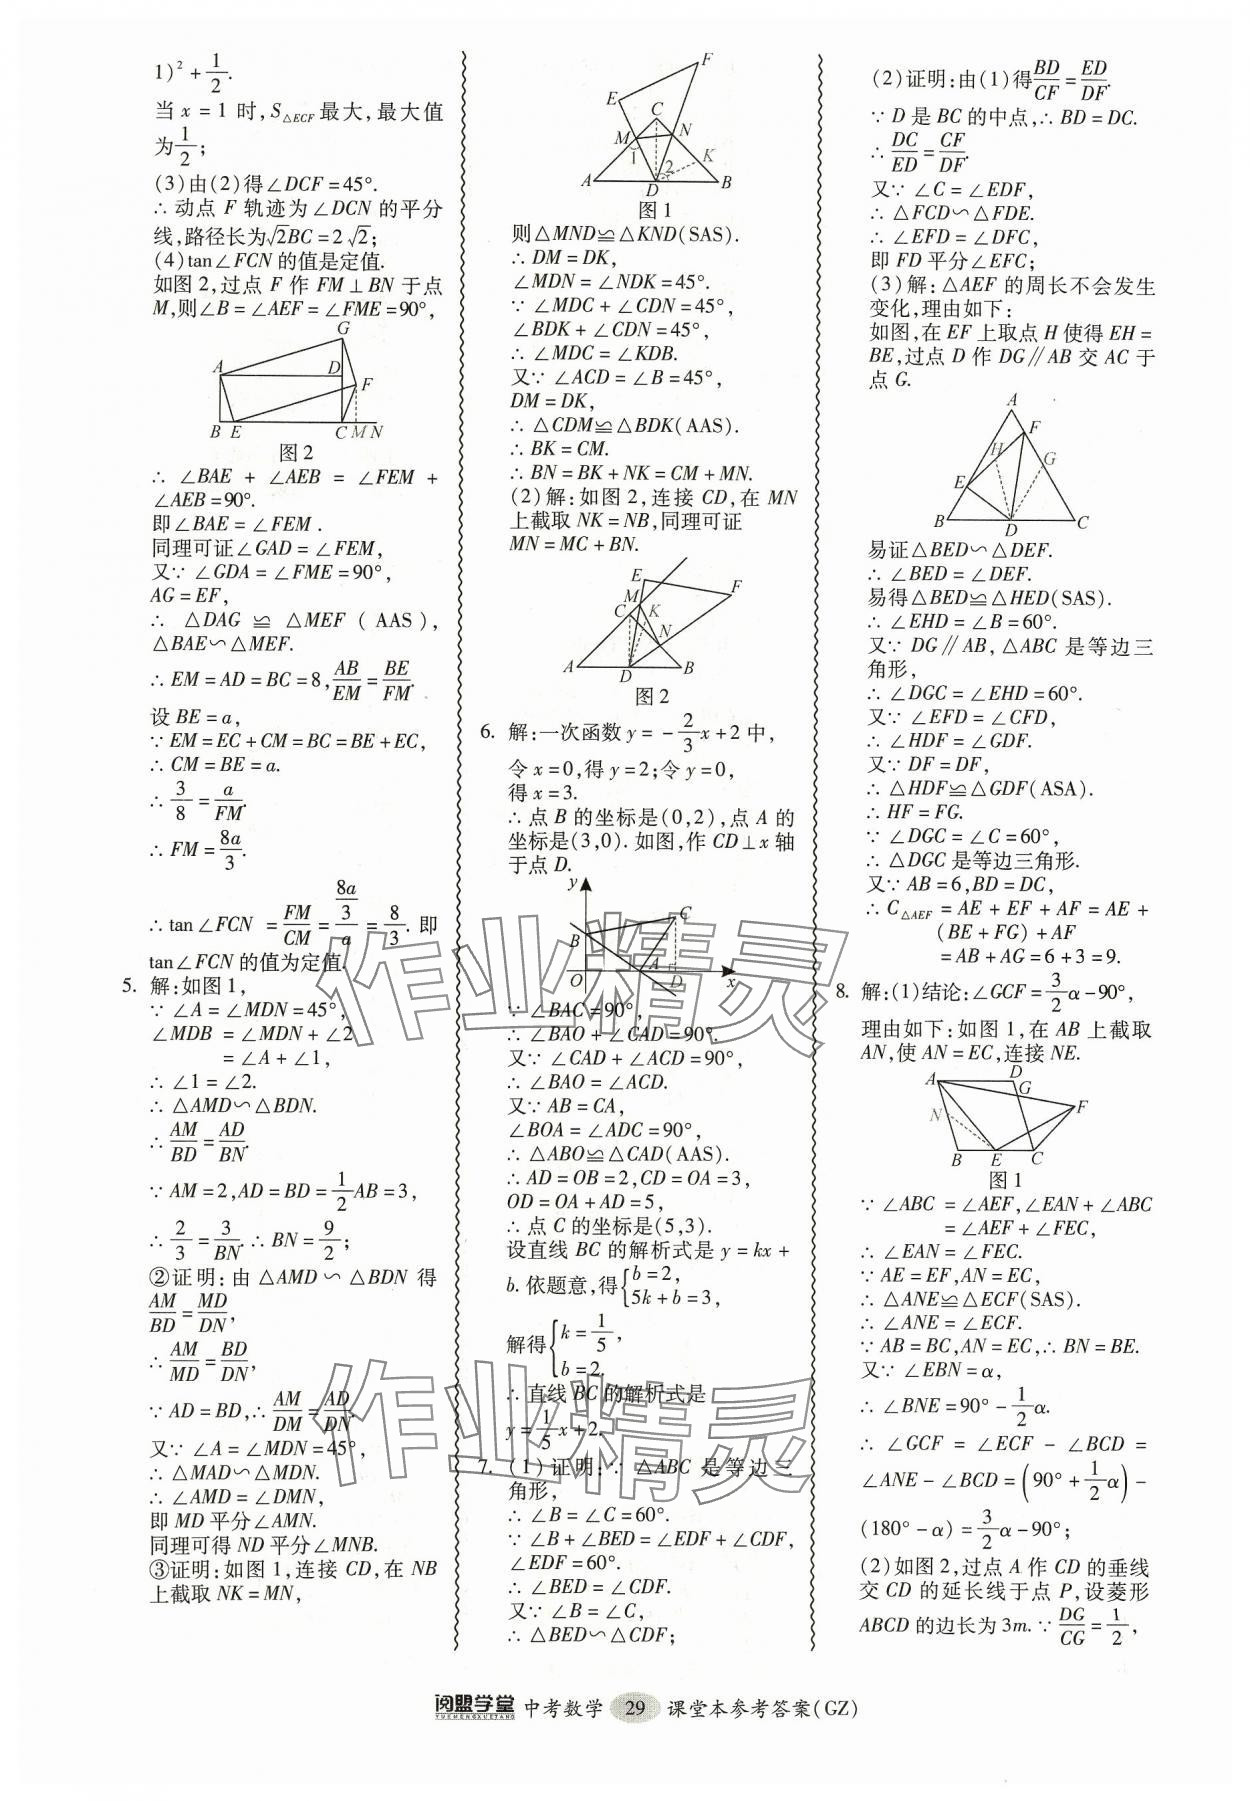 1)² + 1/2.
当 x = 1 时,S△ECF最大,最大值
为1/2;
(3)由(2)得∠DCF=45°.
∴动点 F 轨迹为∠DCN 的平分
线,路径长为√2BC=2√2;
(4)tan∠FCN 的值是定值.
如图2,过点 F 作 FM⊥BN 于点
M,则∠B=∠AEF=∠FME=90°,
G
A
D
F
B E C M N
图2
∴∠BAE + ∠AEB = ∠FEM +
∠AEB=90°.
即∠BAE=∠FEM .
同理可证∠GAD=∠FEM,
又∵∠GDA=∠FME=90°,
AG=EF,
∴ △DAG ≌ △MEF ( AAS),
△BAE∽△MEF.
∴EM=AD=BC=8,AB/EM=BE/FM.
设 BE=a,
∵EM=EC+CM=BC=BE+EC,
∴CM=BE=a.
∴3/8=a/FM.
∴FM=8a/3.
∴tan∠FCN =FM/CM=(8a/3)/a=8/3. 即
tan∠FCN 的值为定值.
5. 解:如图1,
∵∠A=∠MDN=45°,
∠MDB =∠MDN+∠2
=∠A+∠1,
∴∠1=∠2.
∴△AMD∽△BDN.
∴AM/BD=AD/BN.
∵AM=2,AD=BD=1/2AB=3,
∴2/3=3/BN.∴BN=9/2;
②证明:由△AMD∽△BDN 得
AM/BD=MD/DN,
∴AM/MD=BD/DN,
∵AD=BD,∴AM/DM=AD/DN.
又∵∠A=∠MDN=45°,
∴△MAD∽△MDN.
∴∠AMD=∠DMN,
即 MD 平分∠AMN.
同理可得 ND 平分∠MNB.
③证明:如图1,连接 CD,在 NB
上截取 NK=MN,
F
E
C
M N
1 K
2
A D B
图1
则△MND≌△KND(SAS).
∴DM=DK,
∠MDN=∠NDK=45°.
∵∠MDC+∠CDN=45°,
∠BDK+∠CDN=45°,
∴∠MDC=∠KDB.
又∵∠ACD=∠B=45°,
DM=DK,
∴△CDM≌△BDK(AAS).
∴BK=CM.
∴BN=BK+NK=CM+MN.
(2)解:如图2,连接 CD,在 MN
上截取 NK=NB,同理可证
MN=MC+BN.
E
F
M
C K
N
A D B
图2
6. 解:一次函数 y=-2/3x+2 中,
令 x=0,得 y=2;令 y=0,
得 x=3.
∴点 B 的坐标是(0,2),点 A 的
坐标是(3,0).如图,作 CD⊥x 轴
于点 D.
y
C
B
O A D x
∵∠BAC=90°,
∴∠BAO+∠CAD=90°.
又∵∠CAD+∠ACD=90°,
∴∠BAO=∠ACD.
又∵AB=CA,
∠BOA=∠ADC=90°,
∴△ABO≌△CAD(AAS).
∴AD=OB=2,CD=OA=3,
OD=OA+AD=5,
∴点 C 的坐标是(5,3).
设直线 BC 的解析式是 y=kx+
b.依题意,得{b=2, 5k+b=3,
解得{k=1/5, b=2.
∴直线 BC 的解析式是
y=1/5x+2.
7. (1)证明:∵△ABC 是等边三
角形,
∴∠B=∠C=60°.
∵∠B+∠BED=∠EDF+∠CDF,
∠EDF=60°.
∴∠BED=∠CDF.
又∵∠B=∠C,
∴△BED∽△CDF;
(2)证明:由(1)得BD/CF=ED/DF.
∵D 是 BC 的中点,∴BD=DC.
∴DC/ED=CF/DF.
又∵∠C=∠EDF,
∴△FCD∽△FDE.
∴∠EFD=∠DFC,
即 FD 平分∠EFC;
(3)解:△AEF 的周长不会发生
变化,理由如下:
如图,在 EF 上取点 H 使得 EH=
BE,过点 D 作 DG∥AB 交 AC 于
点 G.
A
F
H G
E
B D C
易证△BED∽△DEF.
∴∠BED=∠DEF.
易得△BED≌△HED(SAS).
∴∠EHD=∠B=60°.
又∵DG∥AB,△ABC 是等边三
角形,
∴∠DGC=∠EHD=60°.
又∵∠EFD=∠CFD,
∴∠HDF=∠GDF.
又∵DF=DF,
∴△HDF≌△GDF(ASA).
∴HF=FG.
∵∠DGC=∠C=60°,
∴△DGC 是等边三角形.
又∵AB=6,BD=DC,
∴C△AEF=AE+EF+AF=AE+
(BE+FG)+AF
=AB+AG=6+3=9.
8. 解:(1)结论:∠GCF=3/2α-90°,
理由如下:如图1,在 AB 上截取
AN,使 AN=EC,连接 NE.
A D
G
N F
B E C
图1
∵∠ABC=∠AEF,∠EAN+∠ABC
=∠AEF+∠FEC,
∴∠EAN=∠FEC.
∵AE=EF,AN=EC,
∴△ANE≌△ECF(SAS).
∴∠ANE=∠ECF.
∵AB=BC,AN=EC,∴BN=BE.
又∵∠EBN=α,
∴∠BNE=90°-1/2α.
∴∠GCF=∠ECF-∠BCD=
∠ANE-∠BCD=(90°+1/2α)-
(180°-α)=3/2α-90°;
(2)如图2,过点 A 作 CD 的垂线
交 CD 的延长线于点 P,设菱形
ABCD 的边长为3m.∵DG/CG=1/2,
阅盟学堂 中考数学 29 课堂本参考答案(GZ)
YUEMENGXUETANG
作业精灵
作业精灵